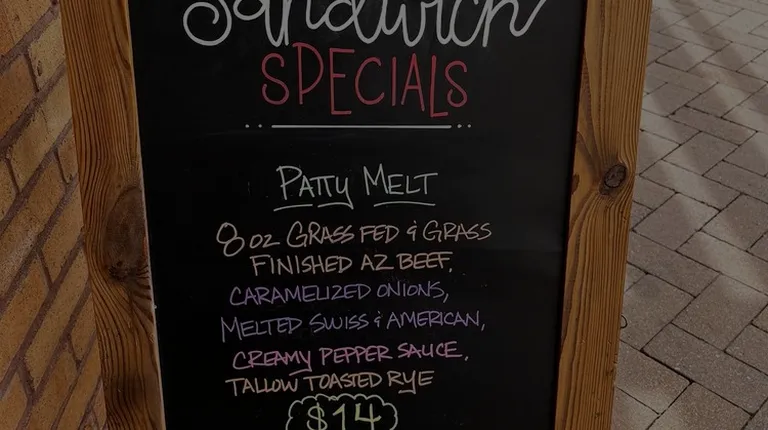 Sandwich
SPECIALS
PATTY MELT
8 OZ GRASS FED & GRASS
FINISHED AZ BEEF,
CARAMELIZED ONIONS,
MELTED SWISS & AMERICAN,
CREAMY PEPPER SAUCE,
TALLOW TOASTED RYE
$14